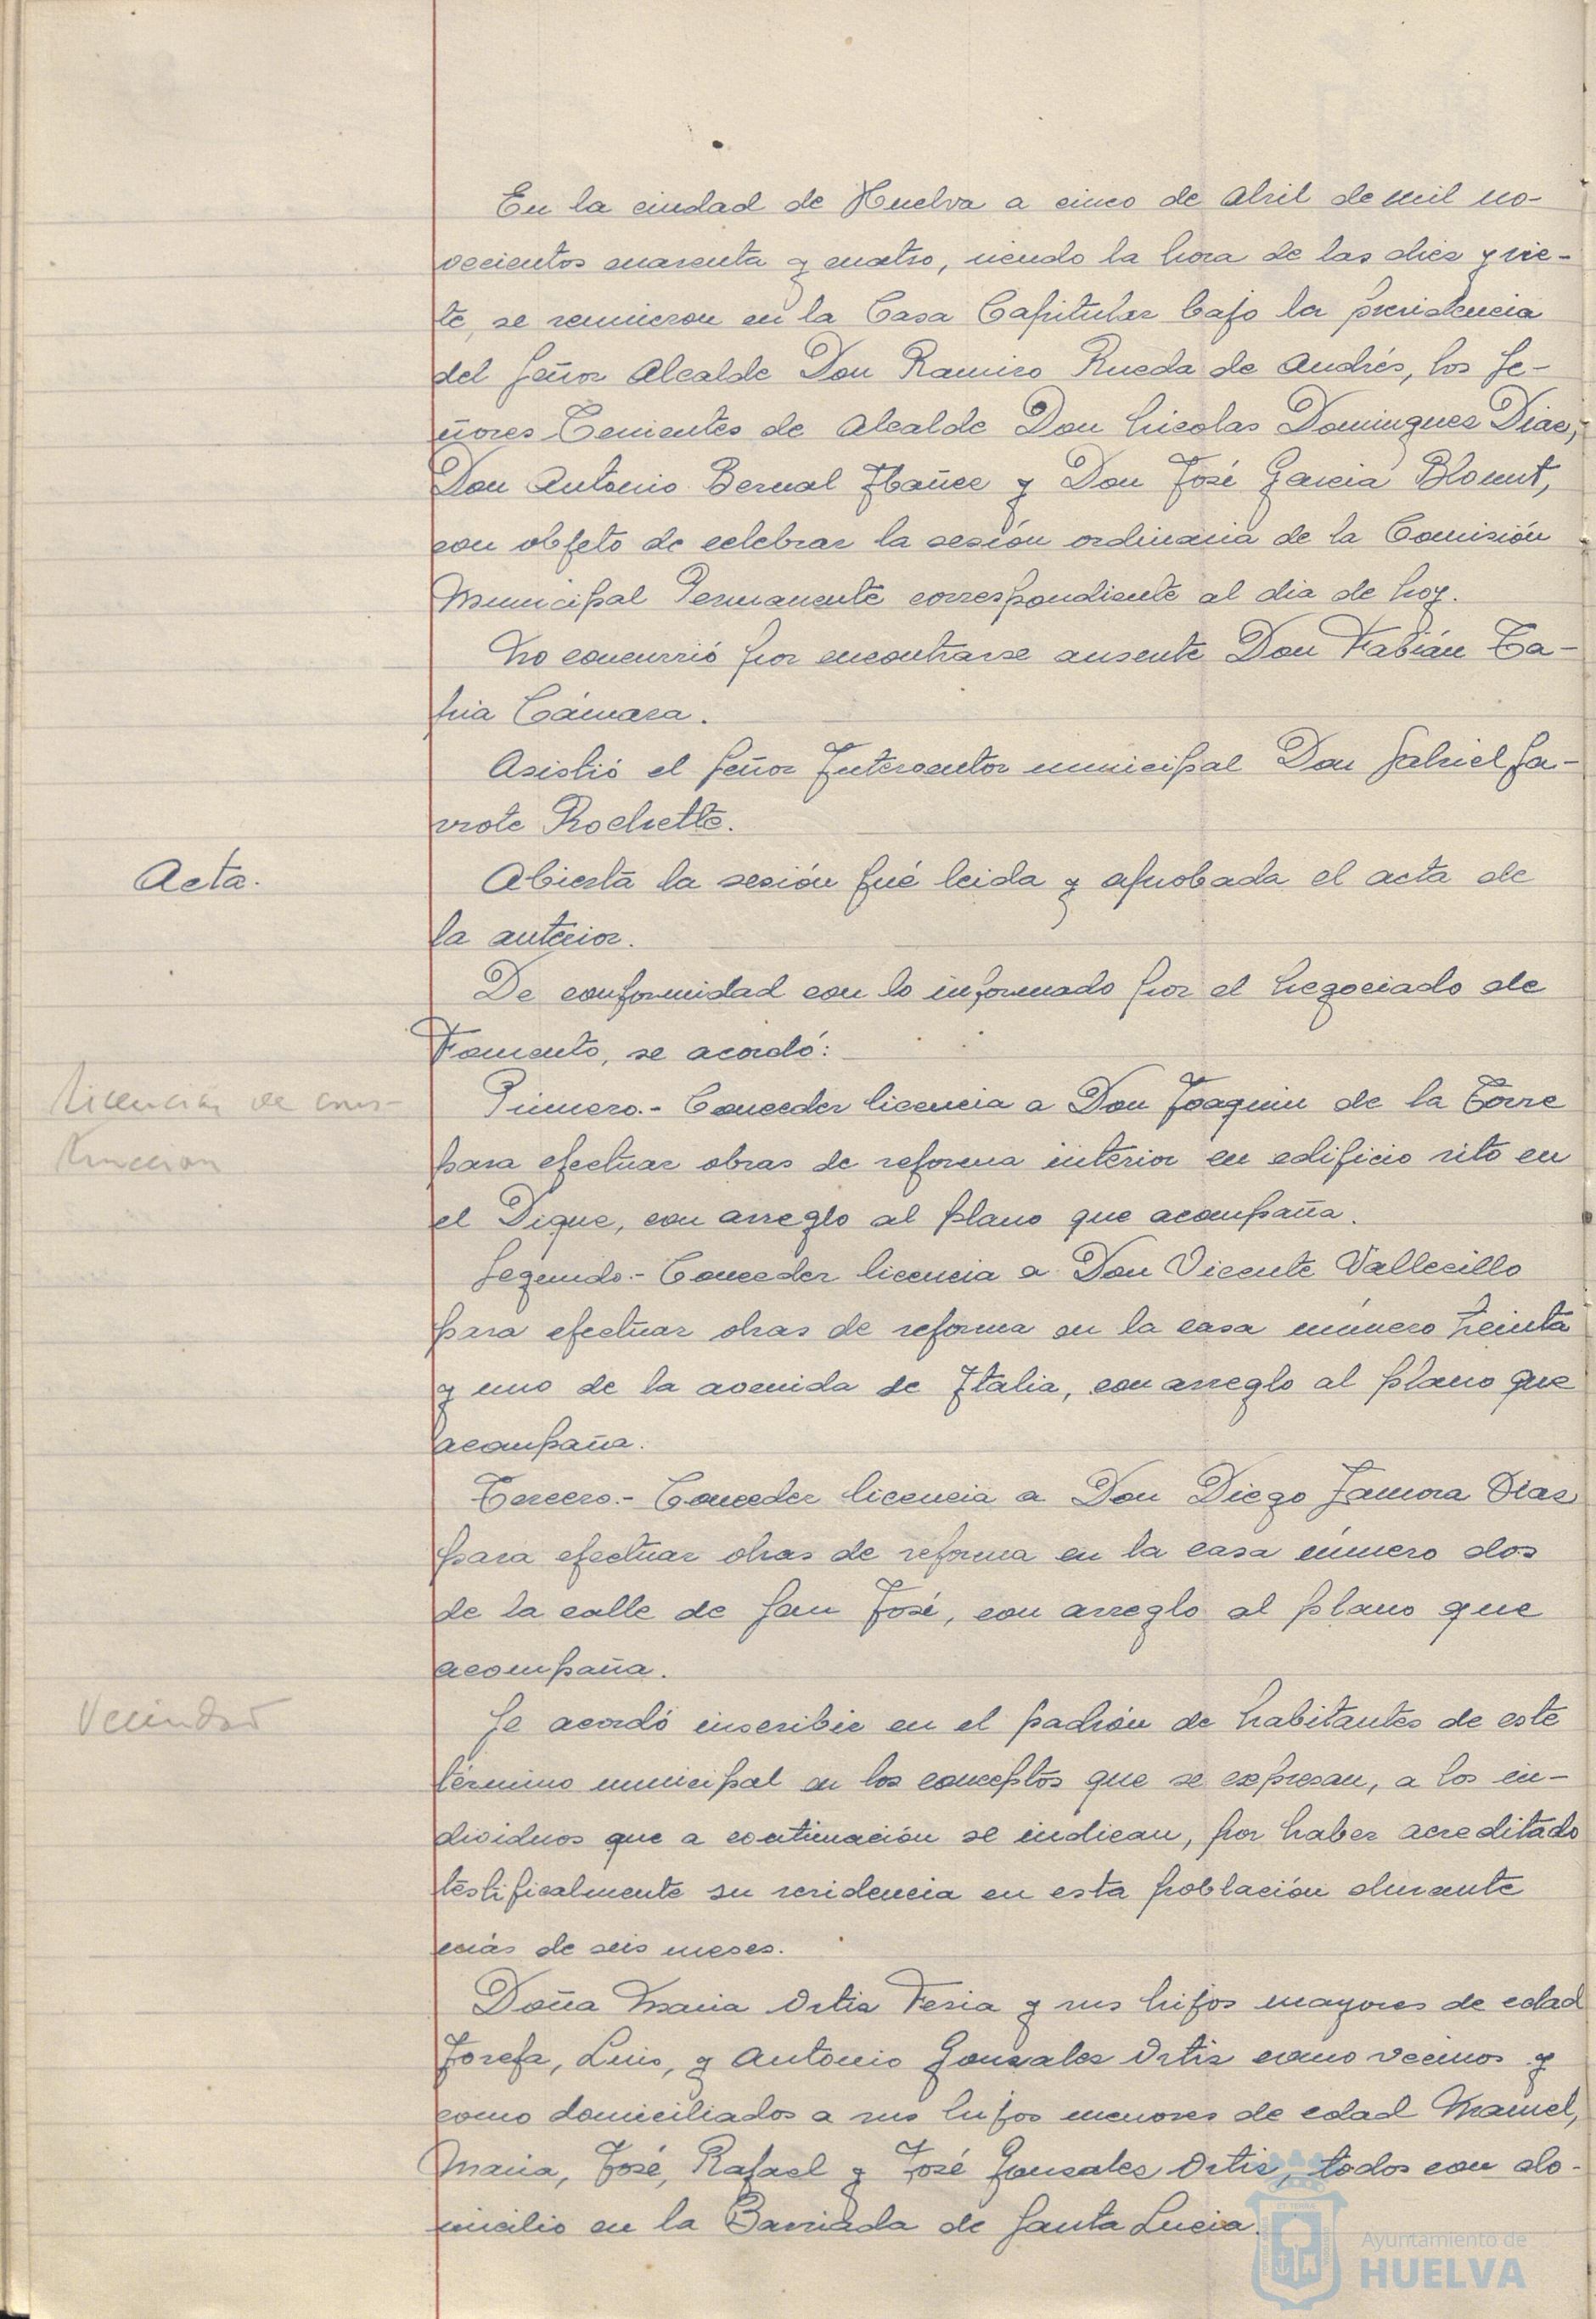 En la ciudad de Huelva a cinco de Abril de mil no-
vecientos cuarenta y cuatro, siendo la hora de las diez y sie-
te, se reunieron en la Casa Capitular bajo la presidencia
del Señor Alcalde Don Ramiro Rueda de Andrés, los Se-
ñores Tenientes de Alcalde Don Nicolas Dominguez Diaz,
Don Antonio Bernal Ibañez y Don José Garcia Blount,
con objeto de celebrar la sesión ordinaria de la Comisión
Municipal Permanente correspondiente al dia de hoy.
No concurrió por encontrarse ausente Don Fabián Ta-
pia Cámara.
Asistió el Señor Interventor municipal Don Gabriel Ga-
vrote Rochette.
Acta.
Abierta la sesión fué leida y aprobada el acta de
la anterior.
De conformidad con lo informado por el Negociado de
Fomento, se acordó:
Licencias de cons-
trucción
Primero.- Conceder licencia a Don Joaquin de la Torre
para efectuar obras de reforma interior en edificio sito en
el Dique, con arreglo al plano que acompaña.
Segundo.- Conceder licencia a Don Vicente Vallecillo
para efectuar obras de reforma en la casa número treinta
y uno de la avenida de Italia, con arreglo al plano que
acompaña.
Tercero.- Conceder licencia a Don Diego Zamora Diaz
para efectuar obras de reforma en la casa número dos
de la calle de San José, con arreglo al plano que
acompaña.
Vecindad
Se acordó inscribir en el padrón de habitantes de este
término municipal en los conceptos que se expresan, a los in-
dividuos que a continuación se indican, por haber acreditado
testificalmente su residencia en esta población durante
más de seis meses.
Doña Maria Ortiz Feria y sus hijos mayores de edad
Josefa, Luis, y Antonio Gonzalez Ortiz como vecinos y
como domiciliados a sus hijos menores de edad Manuel,
Maria, José, Rafael y José Gonzalez Ortiz, todos con do-
micilio en la Barriada de Santa Lucia.
Ayuntamiento de
HUELVA